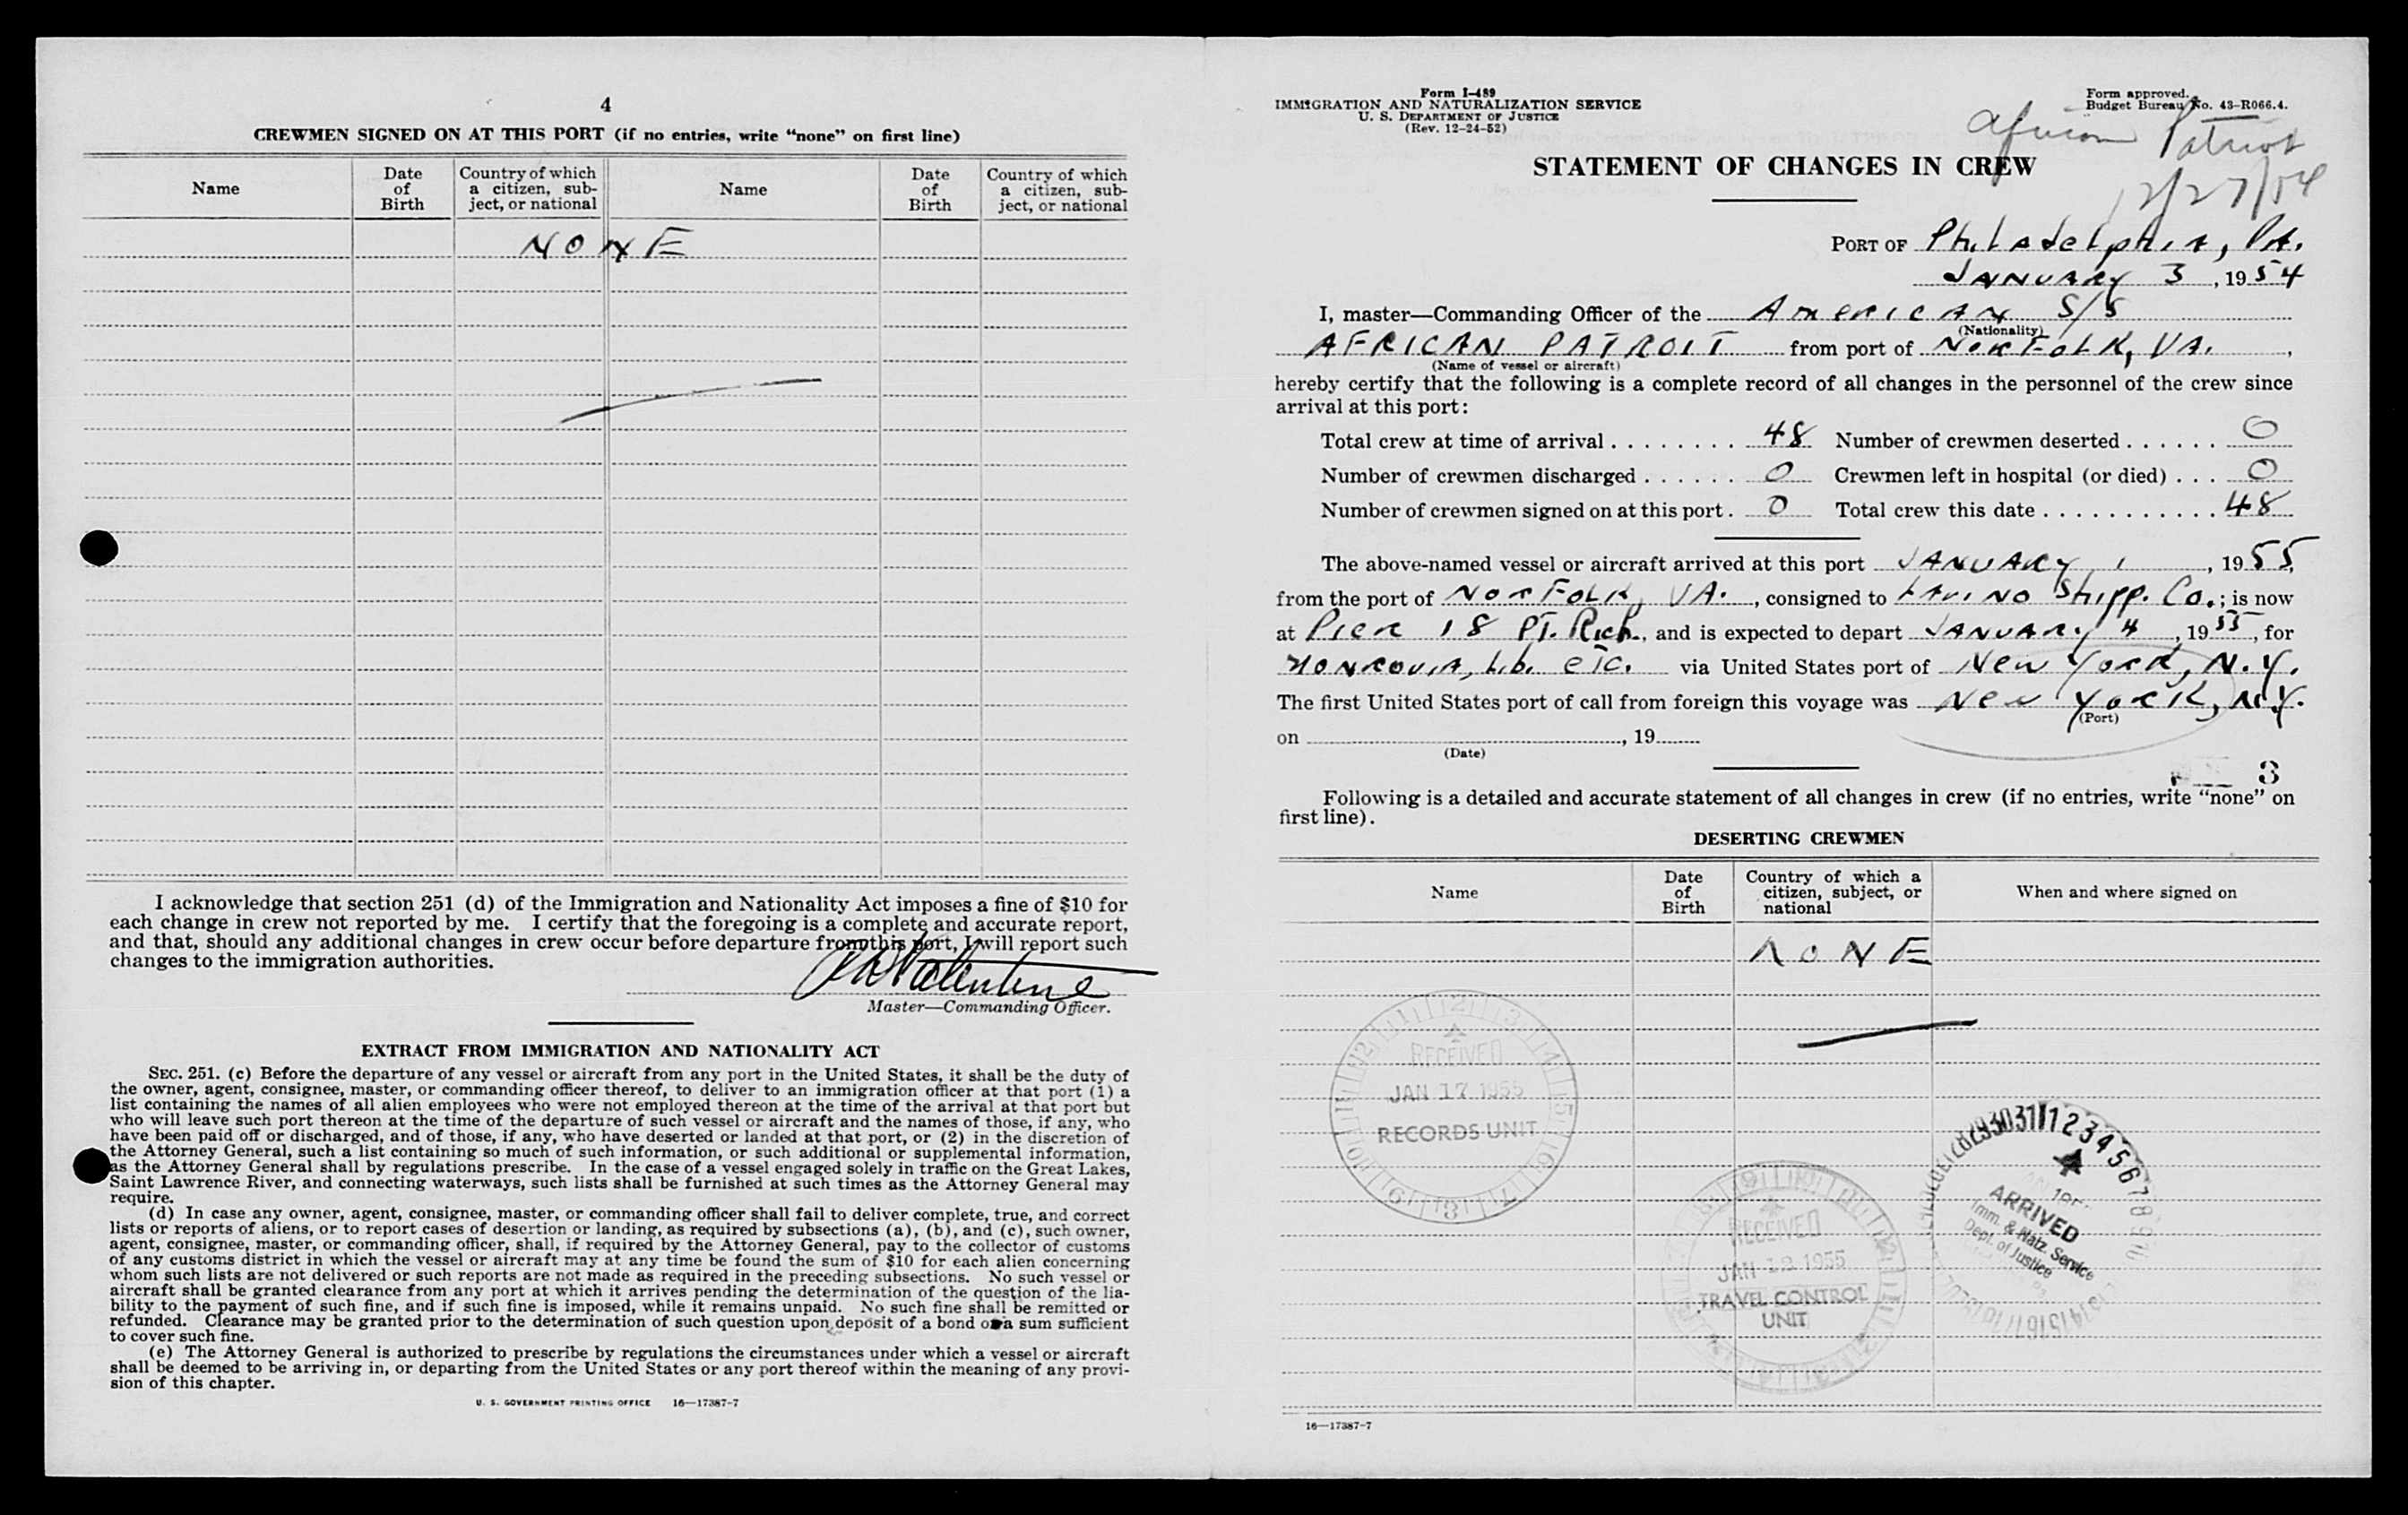 4
CREWMEN SIGNED ON AT THIS PORT (if no entries, write “none” on first line)
Name
Date of Birth
Country of which a citizen, sub-ject, or national
Name
Date of Birth
Country of which a citizen, sub-ject, or national
NONE
I acknowledge that section 251 (d) of the Immigration and Nationality Act imposes a fine of $10 for
each change in crew not reported by me. I certify that the foregoing is a complete and accurate report,
and that, should any additional changes in crew occur before departure from this port, I will report such
changes to the immigration authorities.
Valentine
Master—Commanding Officer.
EXTRACT FROM IMMIGRATION AND NATIONALITY ACT
SEC. 251. (c) Before the departure of any vessel or aircraft from any port in the United States, it shall be the duty of
the owner, agent, consignee, master, or commanding officer thereof, to deliver to an immigration officer at that port (1) a
list containing the names of all alien employees who were not employed thereon at the time of the arrival at that port but
who will leave such port thereon at the time of the departure of such vessel or aircraft and the names of those, if any, who
have been paid off or discharged, and of those, if any, who have deserted or landed at that port, or (2) in the discretion of
the Attorney General, such a list containing so much of such information, or such additional or supplemental information,
as the Attorney General shall by regulations prescribe. In the case of a vessel engaged solely in traffic on the Great Lakes,
Saint Lawrence River, and connecting waterways, such lists shall be furnished at such times as the Attorney General may
require.
(d) In case any owner, agent, consignee, master, or commanding officer shall fail to deliver complete, true, and correct
lists or reports of aliens, or to report cases of desertion or landing, as required by subsections (a), (b), and (c), such owner,
agent, consignee, master, or commanding officer, shall, if required by the Attorney General, pay to the collector of customs
of any customs district in which the vessel or aircraft may at any time be found the sum of $10 for each alien concerning
whom such lists are not delivered or such reports are not made as required in the preceding subsections. No such vessel or
aircraft shall be granted clearance from any port at which it arrives pending the determination of the question of the lia-
bility to the payment of such fine, and if such fine is imposed, while it remains unpaid. No such fine shall be remitted or
refunded. Clearance may be granted prior to the determination of such question upon deposit of a bond or a sum sufficient
to cover such fine.
(e) The Attorney General is authorized to prescribe by regulations the circumstances under which a vessel or aircraft
shall be deemed to be arriving in, or departing from the United States or any port thereof within the meaning of any provi-
sion of this chapter.
U. S. GOVERNMENT PRINTING OFFICE 16—17387-7
Form I-489
IMMIGRATION AND NATURALIZATION SERVICE
U. S. DEPARTMENT OF JUSTICE
(Rev. 12-24-52)
Form approved.
Budget Bureau No. 43-R066.4.
African Patriot
12/27/54
STATEMENT OF CHANGES IN CREW
PORT OF Philadelphia, PA.
JANUARY 3, 1954
I, master—Commanding Officer of the AMERICAN S/S
(Nationality)
AFRICAN PATROIT from port of NORFOLK, VA.,
(Name of vessel or aircraft)
hereby certify that the following is a complete record of all changes in the personnel of the crew since
arrival at this port:
Total crew at time of arrival . . . . . . . . 48 Number of crewmen deserted . . . . . . 0
Number of crewmen discharged . . . . . . 0 Crewmen left in hospital (or died) . . . 0
Number of crewmen signed on at this port . 0 Total crew this date . . . . . . . . . . . . 48
The above-named vessel or aircraft arrived at this port JANUARY 1, 1955,
from the port of NORFOLK, VA., consigned to LAVINO Shipp. Co.; is now
at Pier 18 PT. Rich., and is expected to depart JANUARY 4, 1955, for
MONROVIA, Lib. ETC. via United States port of New York, N.Y.
The first United States port of call from foreign this voyage was New York, N.Y.
(Port)
on , 19
(Date)
3
Following is a detailed and accurate statement of all changes in crew (if no entries, write “none” on
first line).
DESERTING CREWMEN
Name
Date of Birth
Country of which a citizen, subject, or national
When and where signed on
NONE
RECEIVED
JAN 17 1955
RECORDS UNIT
RECEIVED
JAN 12 1955
TRAVEL CONTROL
UNIT
ARRIVED
Imm. & Natz. Service
Dept. of Justice
16—17387-7